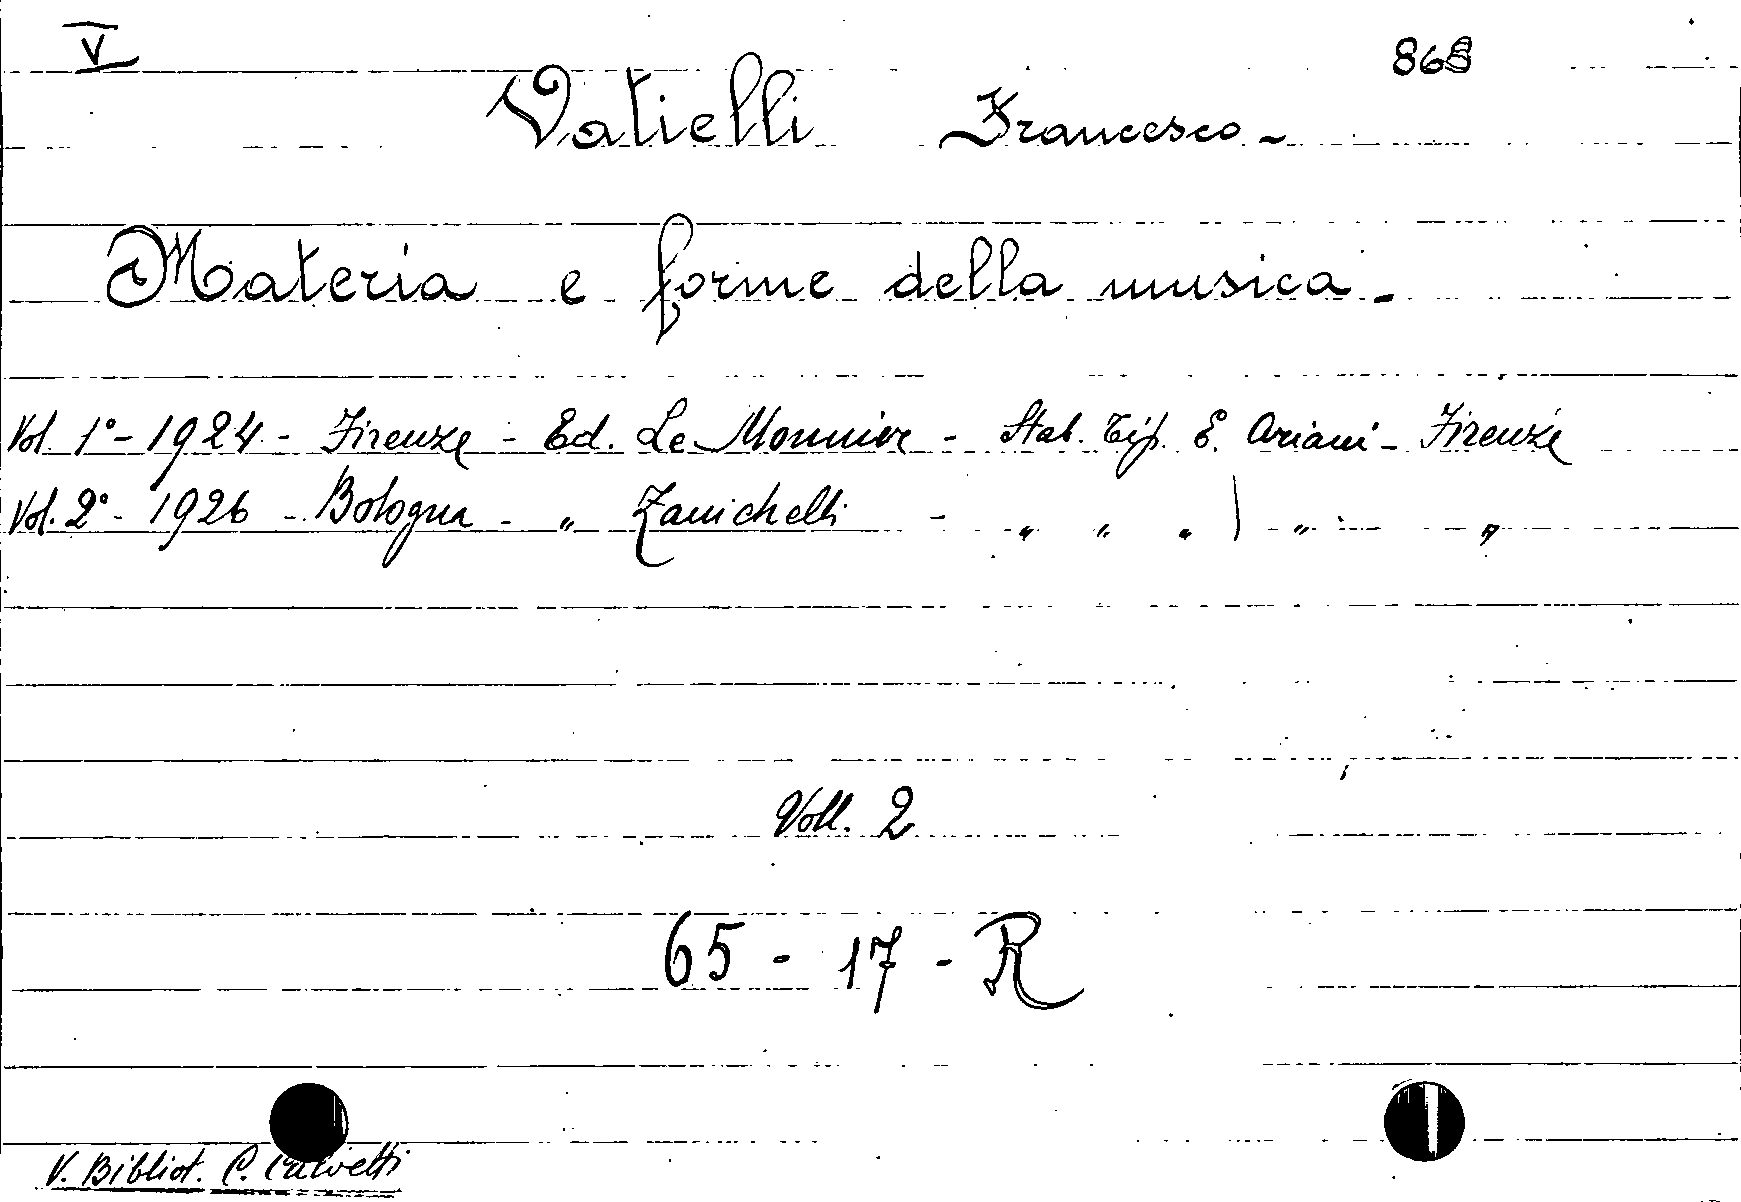 V
Vatielli Francesco -
Materia e forme della musica. -
Vol. 1° - 1924 - Firenze - Ed. Le Monnier - Stab. Tip. E. Ariani - Firenze
Vol. 2° - 1926 - Bologna - " Zanichelli - " " " " "
Voll. 2
65 - 17 - R
V. Bibliot. C.